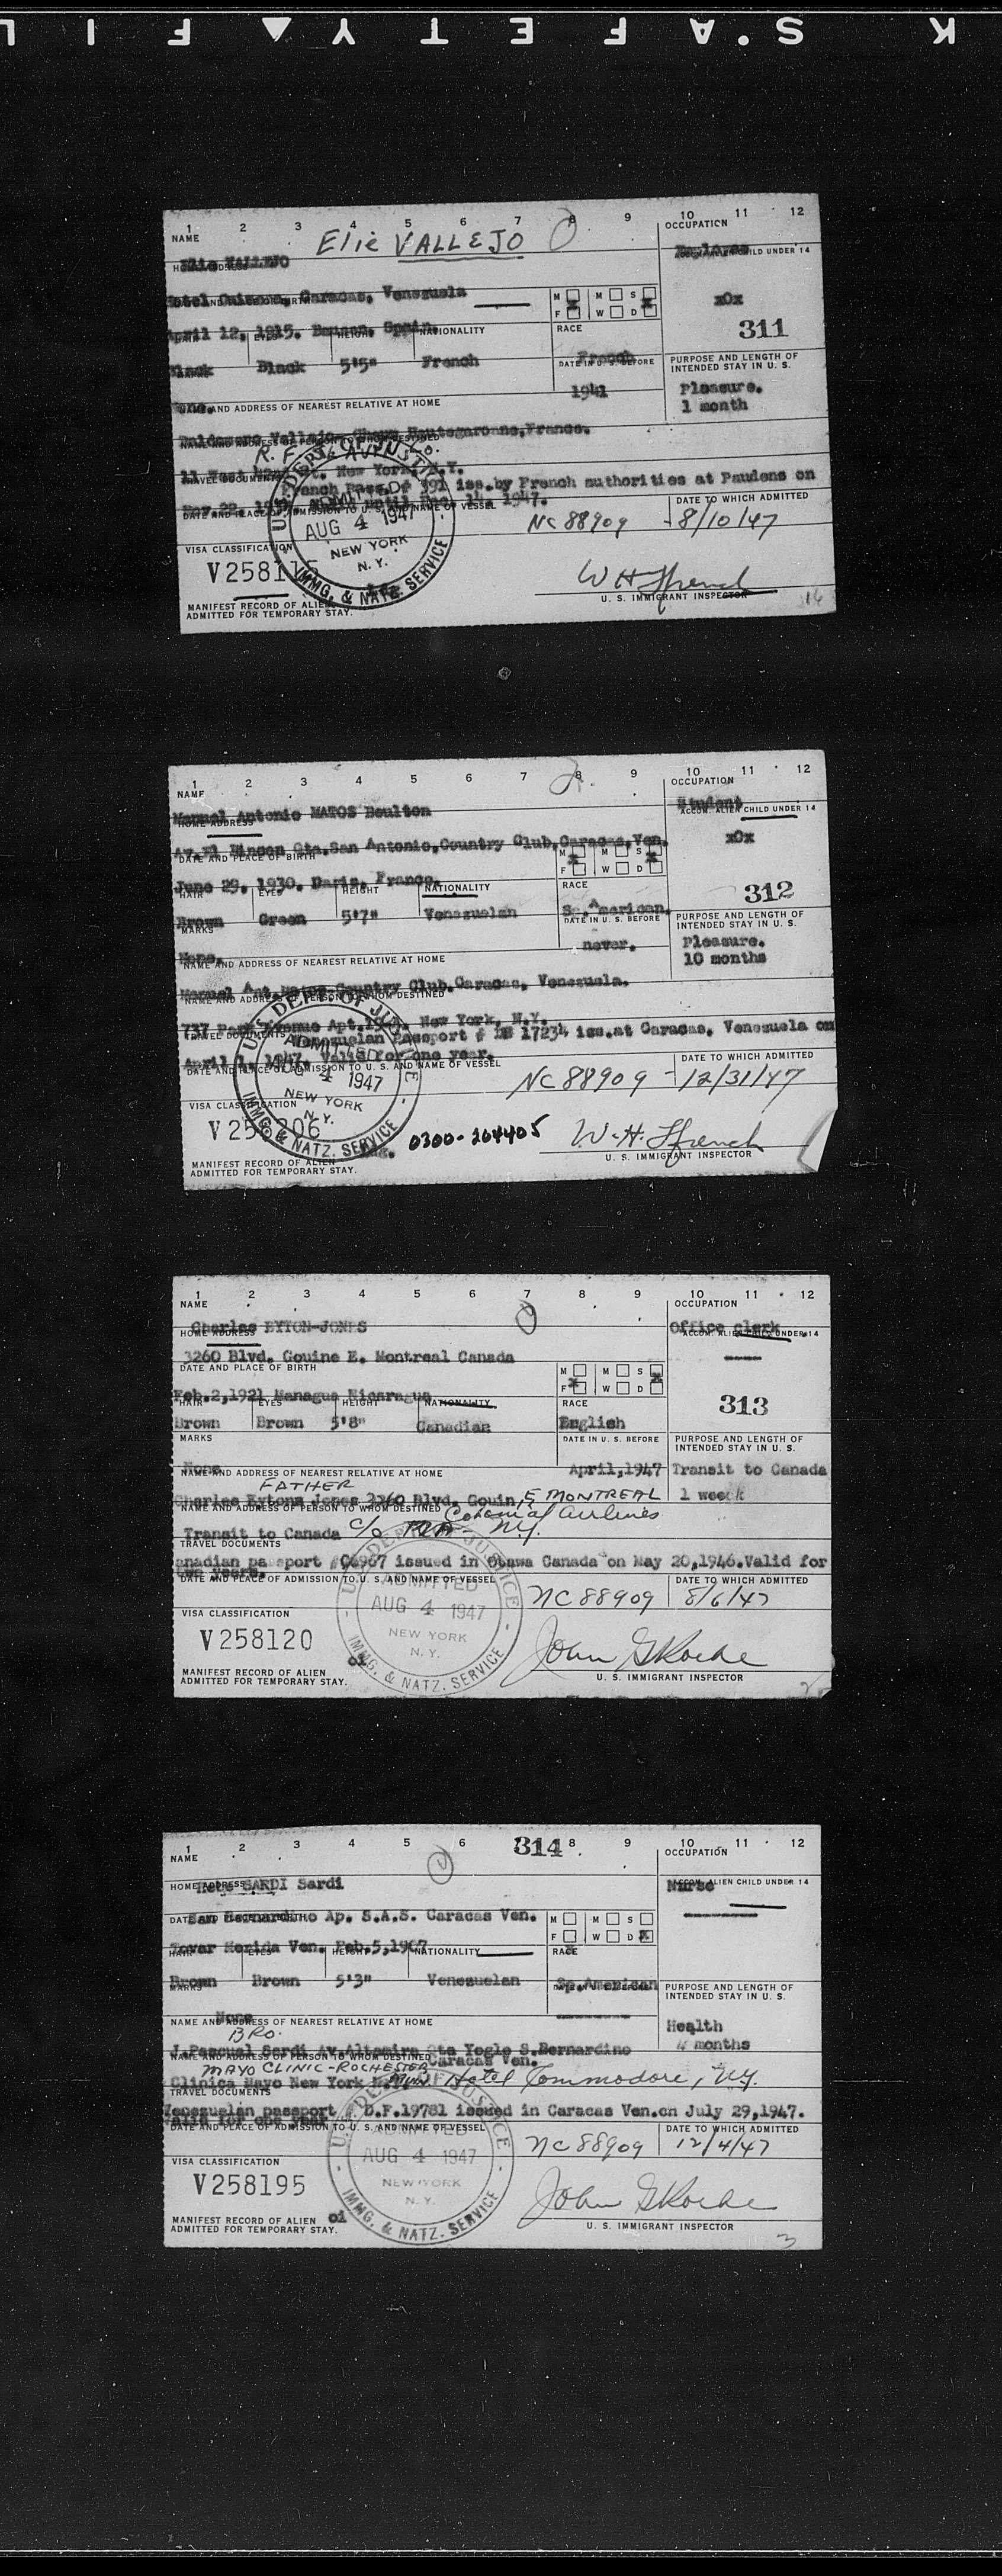 K S.A F E T Y ▲ F I L
1 2 3 4 5 6 7 8 9 10 11 12
NAME
Elie VALLEJO
OCCUPATION
Elie VALLEJO
Employee
HOME ADDRESS
ACCOM. ALIEN CHILD UNDER 14
Hotel Caracas, Venezuela
M M S
xOx
F W D
311
April 12, 1915. Spain.
HAIR EYES HEIGHT NATIONALITY
RACE
Black Black 5'5" French
French
DATE IN U. S. BEFORE
PURPOSE AND LENGTH OF
INTENDED STAY IN U. S.
1941
Pleasure.
1 month
None.
NAME AND ADDRESS OF NEAREST RELATIVE AT HOME
Vallejo. Hautegaronne, France.
NAME AND ADDRESS OF PERSON TO WHOM DESTINED
11 West 42nd St. New York, N.Y.
TRAVEL DOCUMENTS
French Pass. # 391 iss. by French authorities at on
Nov. 22, until Dec. 14, 1947.
DATE AND PLACE OF ADMISSION TO U. S. AND NAME OF VESSEL
DATE TO WHICH ADMITTED
NC 88909 - 8/10/47
U. S. DEPT. OF JUSTICE
ADMITTED
AUG 4 1947
NEW YORK
N. Y.
IMMG. & NATZ. SERVICE
VISA CLASSIFICATION
V258115
W H French
U. S. IMMIGRANT INSPECTOR
MANIFEST RECORD OF ALIEN
ADMITTED FOR TEMPORARY STAY.
16
1 2 3 4 5 6 7 8 9 10 11 12
NAME
OCCUPATION
Manuel Antonio MATOS Boulton
Student
HOME ADDRESS
ACCOM. ALIEN CHILD UNDER 14
Av. El Rincon Qta. San Antonio, Country Club, Caracas, Ven.
xOx
DATE AND PLACE OF BIRTH
M M S
F W D
June 29, 1930. Paris, France.
312
HAIR EYES HEIGHT NATIONALITY
RACE
Brown Green 5'7" Venezuelan
So. American.
MARKS
DATE IN U. S. BEFORE
PURPOSE AND LENGTH OF
INTENDED STAY IN U. S.
None.
never.
Pleasure.
10 months
NAME AND ADDRESS OF NEAREST RELATIVE AT HOME
Manuel Ant. Matos Country Club, Caracas, Venezuela.
NAME AND ADDRESS OF PERSON TO WHOM DESTINED
737 Park Avenue Apt. New York, N.Y.
TRAVEL DOCUMENTS
Venezuelan Passport # 17234 iss. at Caracas, Venezuela on
April 1, 1947. Valid for one year.
DATE AND PLACE OF ADMISSION TO U. S. AND NAME OF VESSEL
DATE TO WHICH ADMITTED
NC 88909 - 12/31/47
U. S. DEPT. OF JUSTICE
ADMITTED
AUG 4 1947
NEW YORK
N. Y.
IMMG. & NATZ. SERVICE
VISA CLASSIFICATION
V 258206
0300-204405
W. H. French
U. S. IMMIGRANT INSPECTOR
MANIFEST RECORD OF ALIEN
ADMITTED FOR TEMPORARY STAY.
1 2 3 4 5 6 7 8 9 10 11 12
NAME
OCCUPATION
Charles EYTON-JONES
Office clerk
HOME ADDRESS
ACCOM. ALIEN CHILD UNDER 14
3260 Blvd. Gouine E. Montreal Canada
DATE AND PLACE OF BIRTH
M M S
F W D
Feb.2,1921 Managua Nicaragua
313
HAIR EYES HEIGHT NATIONALITY
RACE
Brown Brown 5'8" Canadian
English
MARKS
DATE IN U. S. BEFORE
PURPOSE AND LENGTH OF
INTENDED STAY IN U. S.
None
April,1947
Transit to Canada
NAME AND ADDRESS OF NEAREST RELATIVE AT HOME
FATHER
1 week
Charles Eytons Jones 3260 Blvd. Gouin, E MONTREAL
NAME AND ADDRESS OF PERSON TO WHOM DESTINED
Colonial Airlines
Transit to Canada c/o NY.
TRAVEL DOCUMENTS
anadian passport #C4967 issued in Otawa Canada on May 20,1946.Valid for
two years.
DATE AND PLACE OF ADMISSION TO U. S. AND NAME OF VESSEL
DATE TO WHICH ADMITTED
NC88909 8/6/47
U. S. DEPT. OF JUSTICE
ADMITTED
AUG 4 1947
NEW YORK
N. Y.
IMMG. & NATZ. SERVICE
VISA CLASSIFICATION
V258120
oi
John G Roche
U. S. IMMIGRANT INSPECTOR
MANIFEST RECORD OF ALIEN
ADMITTED FOR TEMPORARY STAY.
1 2 3 4 5 6 314 8 9 10 11 12
NAME
OCCUPATION
SARDI Sardi
Nurse
HOME ADDRESS
ACCOM. ALIEN CHILD UNDER 14
San Bernardino Ap. S.A.S. Caracas Ven.
M M S
F W D
Tovar Merida Ven. Feb.5,1907
HAIR EYES HEIGHT NATIONALITY
RACE
Brown Brown 5'3" Venezuelan
So.American
MARKS
PURPOSE AND LENGTH OF
INTENDED STAY IN U. S.
None
Health
4 months
NAME AND ADDRESS OF NEAREST RELATIVE AT HOME
BRO.
J.Pascual Sardi Av.Altamira Qta Yogle S.Bernardino
Caracas Ven.
NAME AND ADDRESS OF PERSON TO WHOM DESTINED
MAYO CLINIC-ROCHESTER
MINN.
Clinica Mayo New York Hotel Commodore, NY.
TRAVEL DOCUMENTS
Venezuelan passport # D.F.19781 issued in Caracas Ven.on July 29,1947.
Valid for one year
DATE AND PLACE OF ADMISSION TO U. S. AND NAME OF VESSEL
DATE TO WHICH ADMITTED
NC88909 12/4/47
U. S. DEPT. OF JUSTICE
ADMITTED
AUG 4 1947
NEW YORK
N. Y.
IMMG. & NATZ. SERVICE
VISA CLASSIFICATION
V258195
oi
John G Roche
U. S. IMMIGRANT INSPECTOR
MANIFEST RECORD OF ALIEN
ADMITTED FOR TEMPORARY STAY.
3